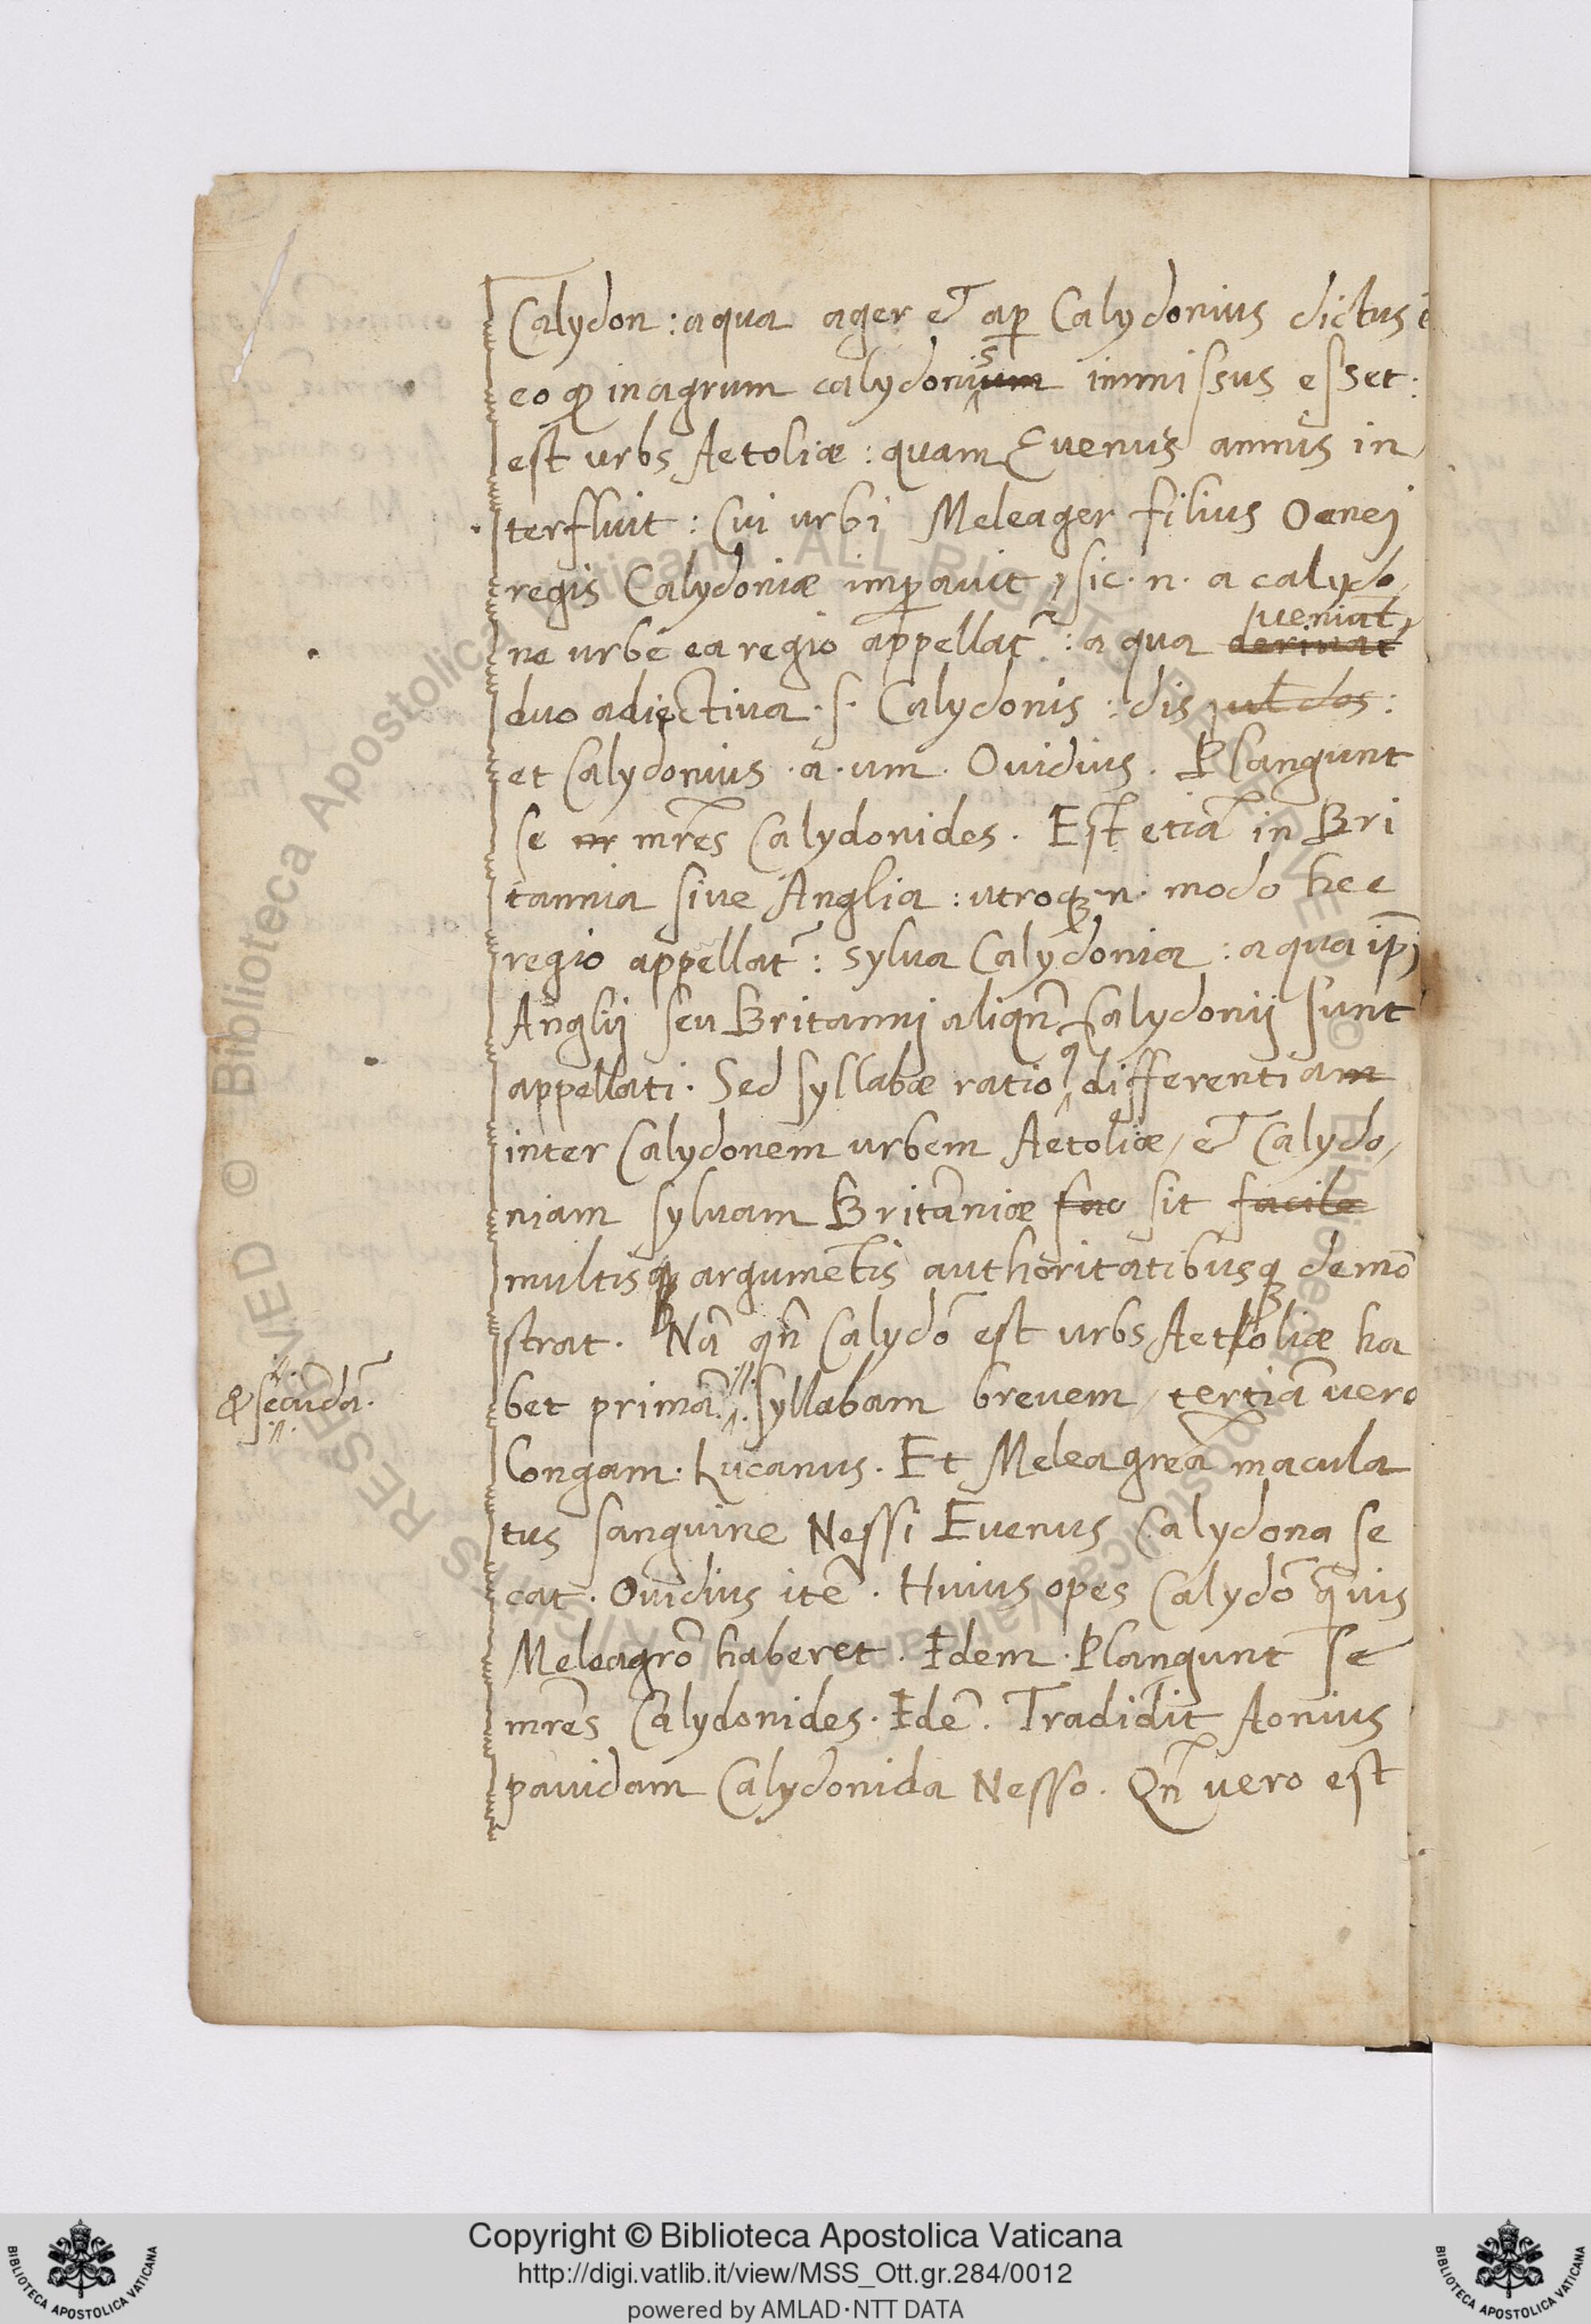 Calydon: aqua ager et ap̲ Calydonius dictus ē
eo qͻ in agrum calydoniusum immissus esset:
est urbs Aetoliæ: quam Euenus amnis in
terfluit: Cui urbi Meleager filius Oenej
regis Calydoniæ imp̲auit, sic. n. a calydo,
ueniūt,
ne urbe ea regio appellat᷑: a qua deriuat
duo adiectiua .s. Calydonis: dis uł dos:
et Calydonius .a. um. Ouidius. Plangunt
se mr̄es Calydonides. Est etiā in Bri
tannia siue Anglia: utroqꝫ n. modo hec
regio appellat᷑: sylua Calydonia: a qua ip̄j
Anglij seu Britannj aliqn̄ Calydonij sunt
appellati. Sed syllabæ ratio q differentiam
inter Calydonem urbem Aetoliæ, et Calydo,
niam syluam Britāniæ fac sit facile
multisqꝫ argumētis authoritatibusqꝫ demō
strat. Nā qn̄ Calydō est urbs Aetoliæ ha
& secundā.
bet primā syllabam breuem, tertiā uero
longam. Lucanus. Et Meleagreā macula
tus sanguine Nessi Euenus Calydona se
cat. Ouidius itē. Huius opes Calydō q̄uis
Meleagrō haberet. Idem. Plangunt se
mr̄es Calydonides. Idē. Tradidit Aonius
pauidam Calydonida Nesso. Qn̄ uero est
Copyright © Biblioteca Apostolica Vaticana
http://digi.vatlib.it/view/MSS_Ott.gr.284/0012
powered by AMLAD·NTT DATA
BIBLIOTECA APOSTOLICA VATICANA
BIBLIOTECA APOSTOLICA VATICANA